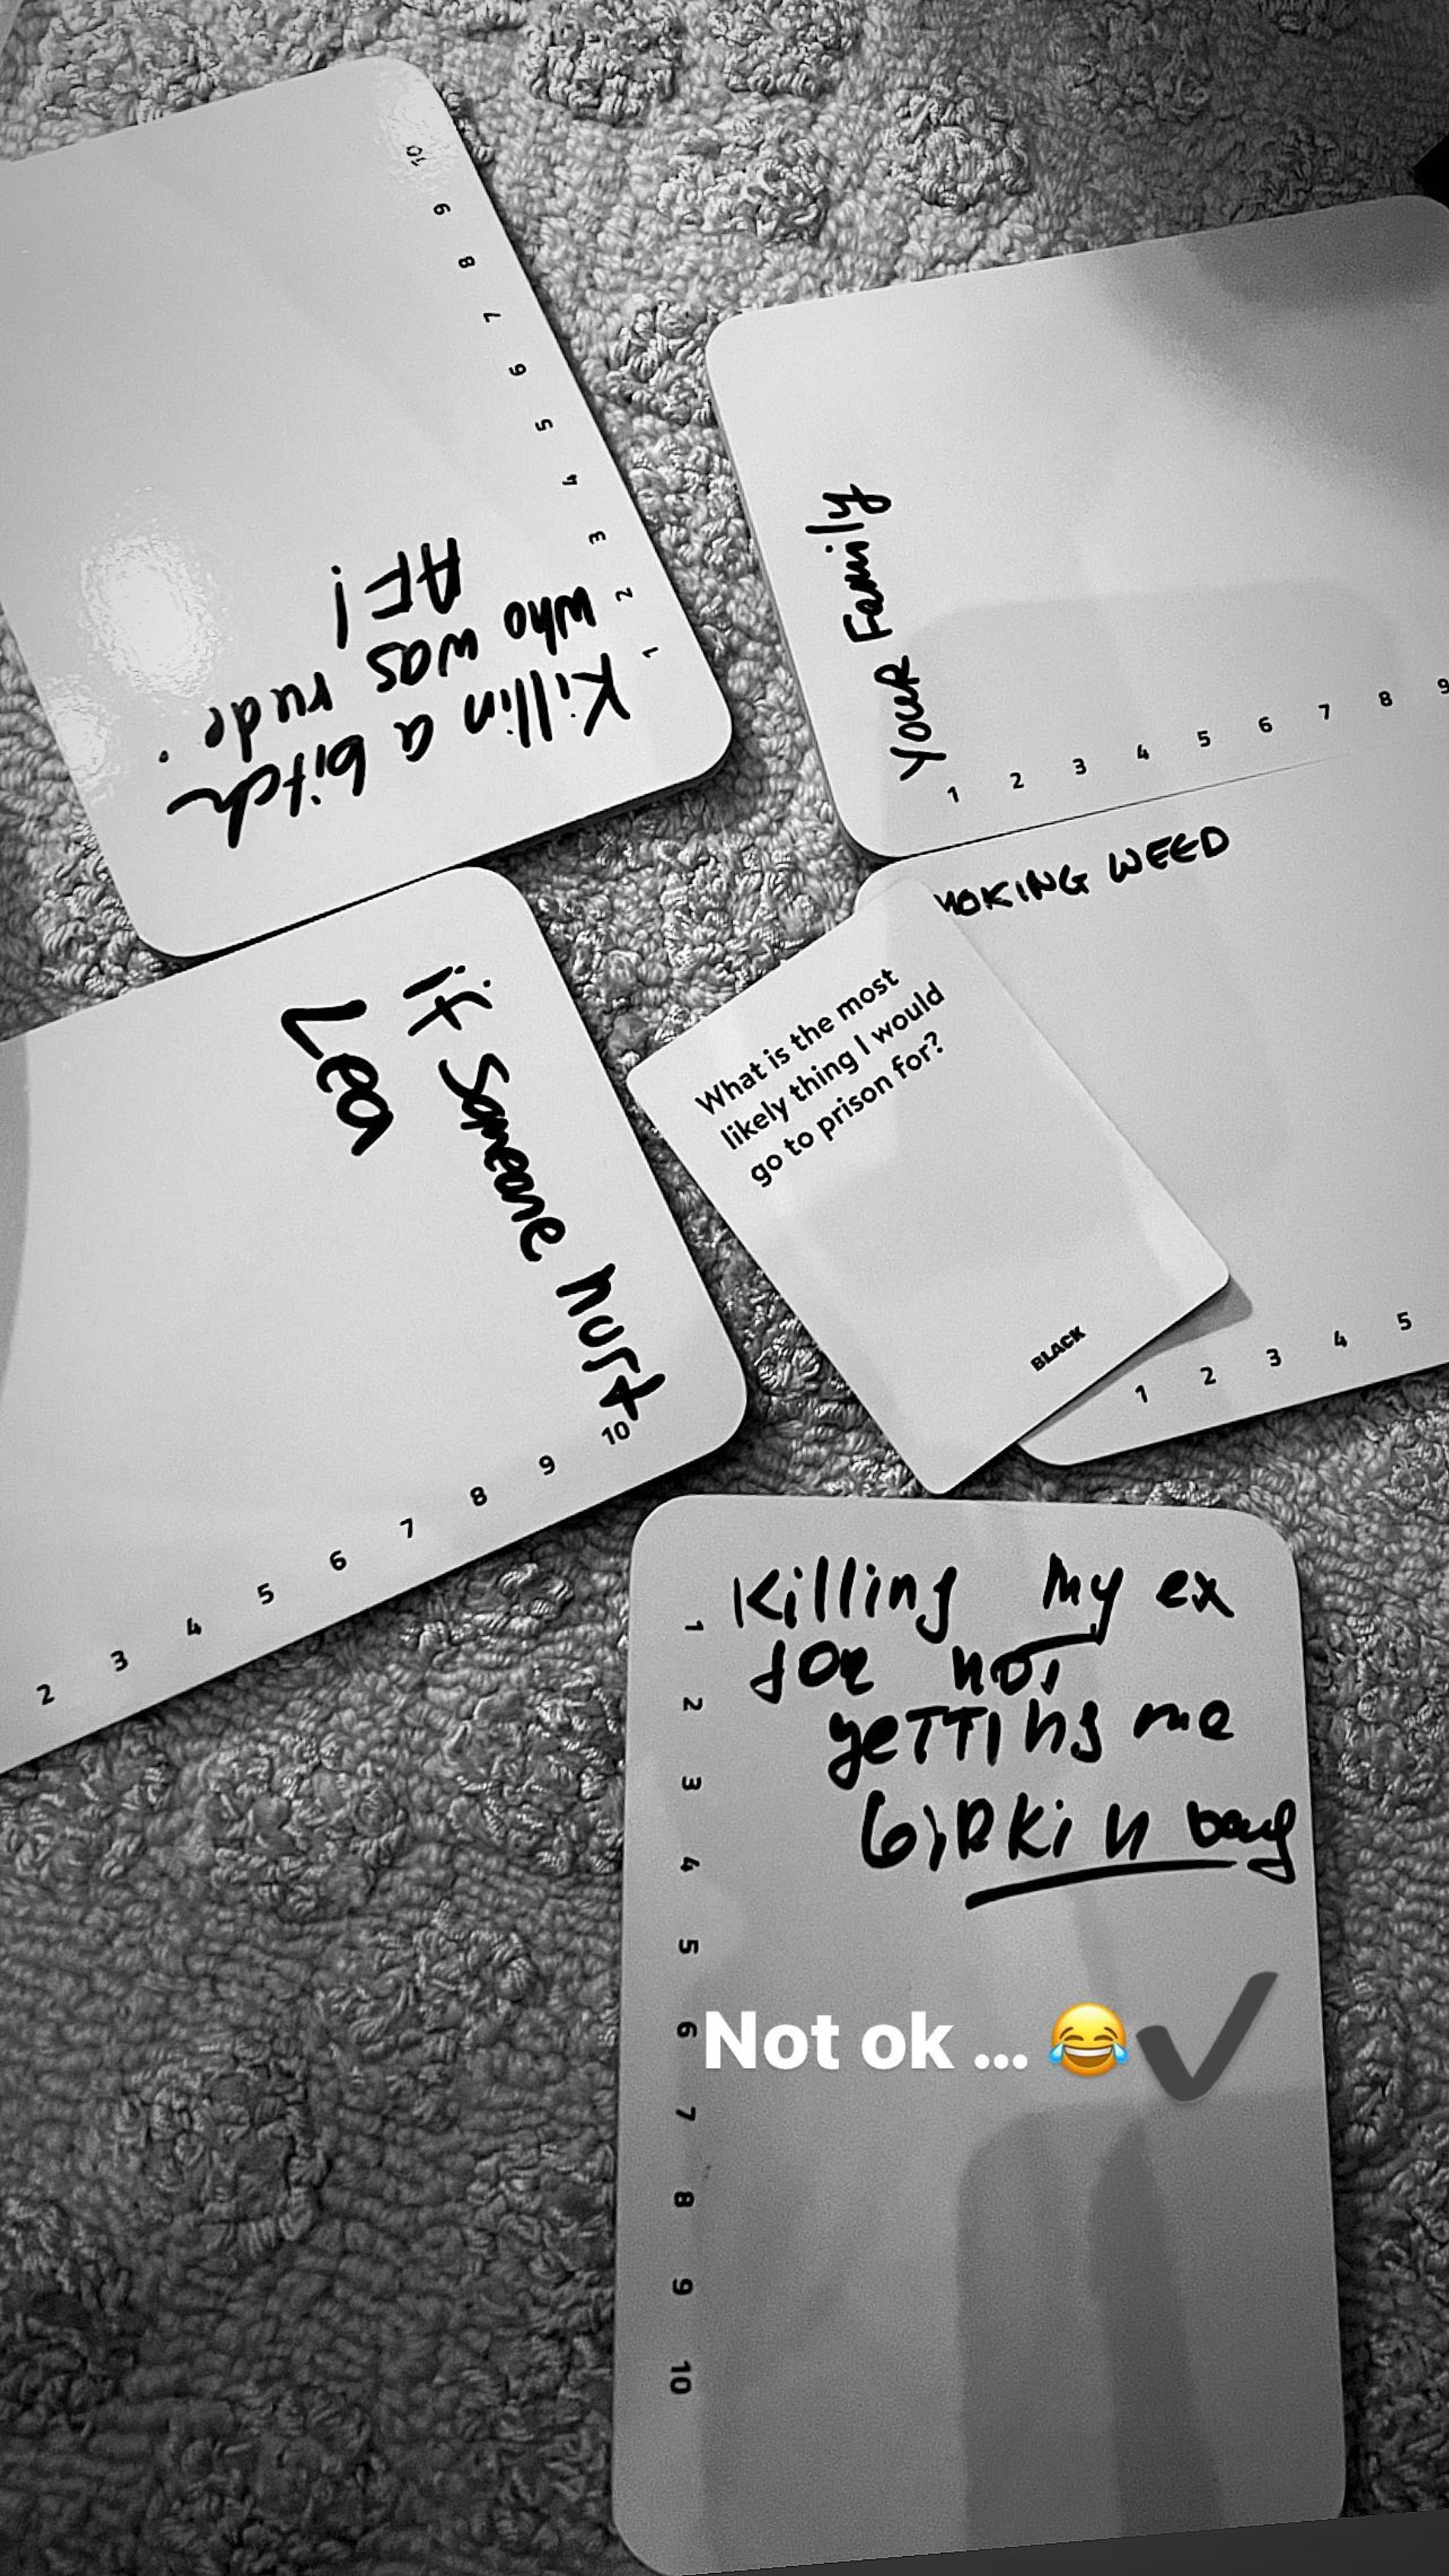 10
9
8
7
6
5
4
3
2
1
Killin a bitch
who was rude
AF!
Your Family
1 2 3 4 5 6 7 8 9
MOKING WEED
1 2 3 4 5
What is the most
likely thing I would
go to prison for?
BLACK
if someone hurt
Lea
2 3 4 5 6 7 8 9 10
Killing my ex
for not
getting me
birkin bag
1
2
3
4
5
6
7
8
9
10
Not ok ... 😂✔